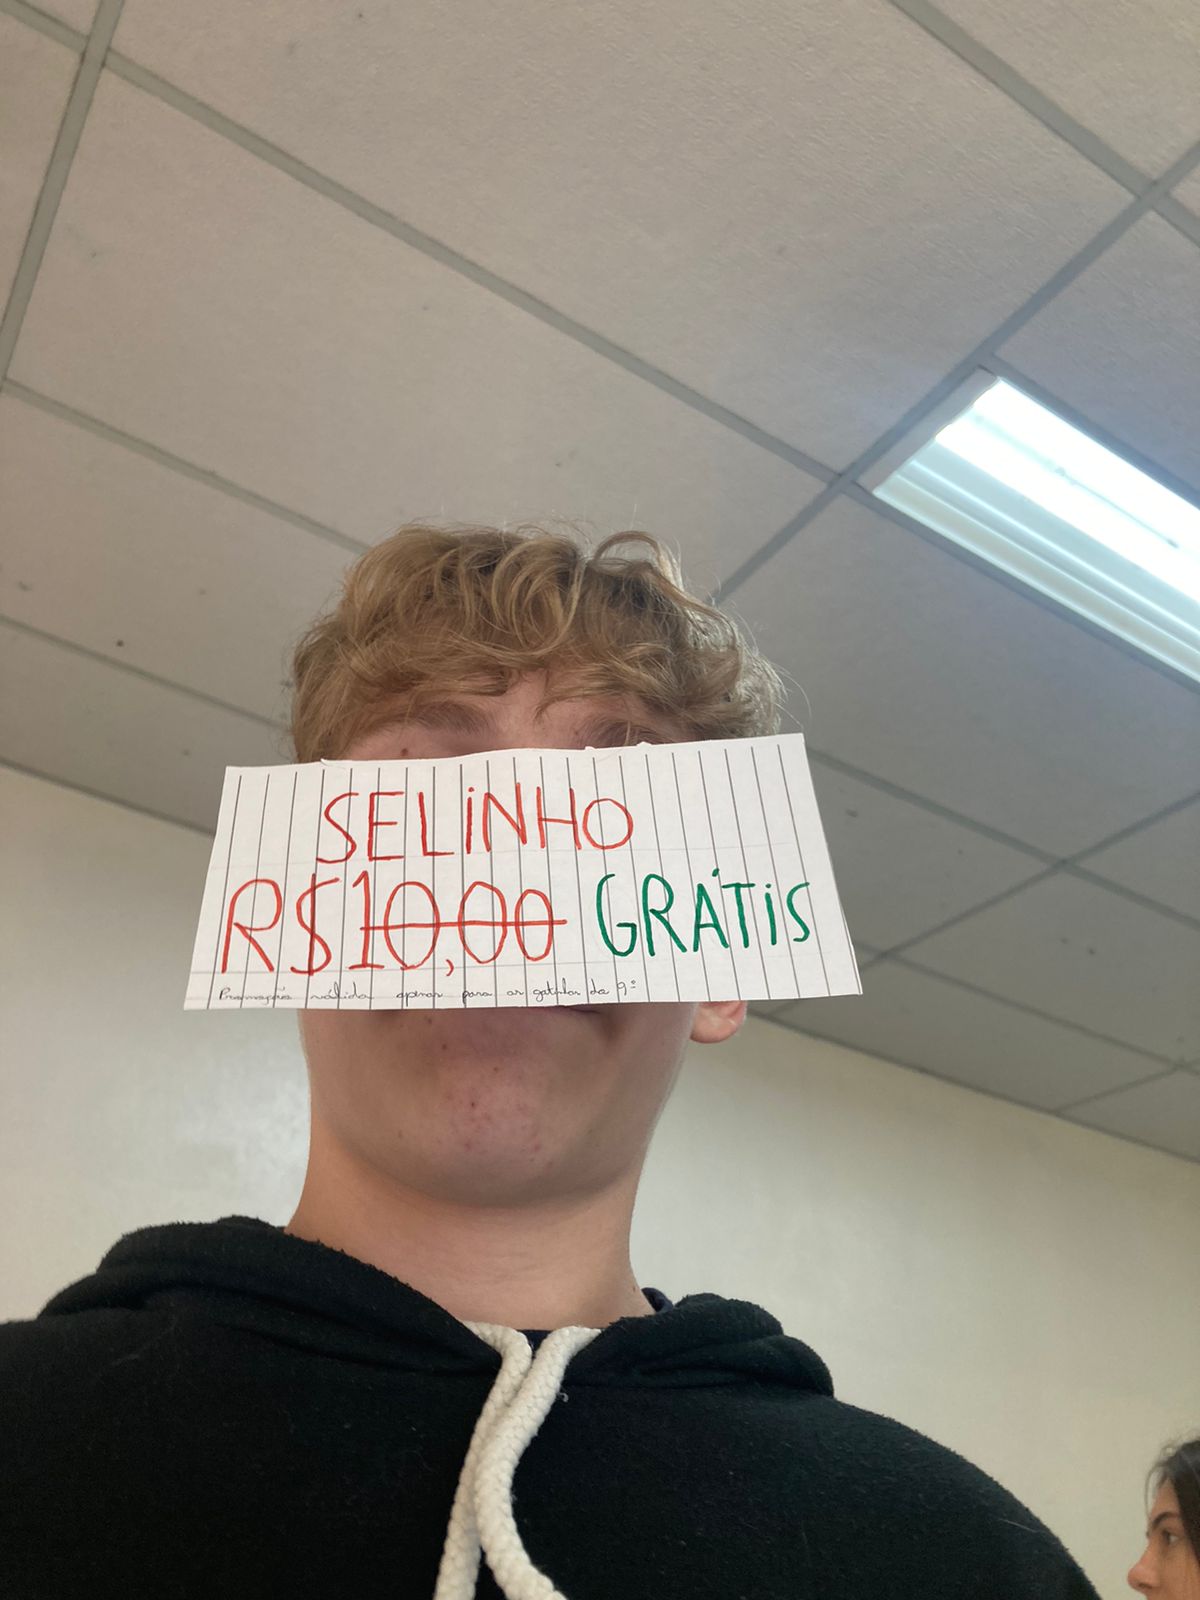 SELINHO
R$10,00 GRÁTIS
Promoção válida apenas para as gatinhas do 9º